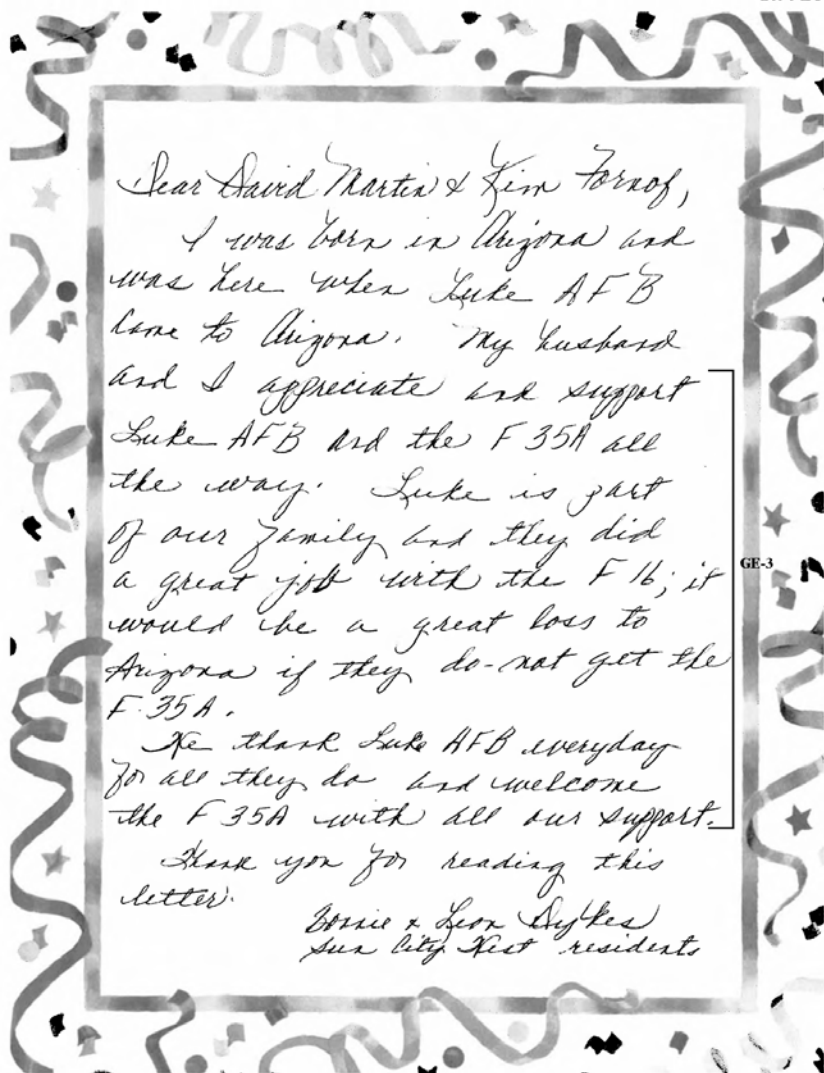 Dear David Martin & Kim Fornof,
I was born in Arizona and
was here when Luke AFB
came to Arizona. My husband
and I appreciate and support
Luke AFB and the F 35A all
the way. Luke is part
of our family and they did
a great job with the F 16; it
would be a great loss to
Arizona if they do-not get the
F-35A.
We thank Luke AFB everyday
for all they do and welcome
the F 35A with all our support.
Thank you for reading this
letter.
Bonnie & Leon Dykes
Sun City West residents
GE-3